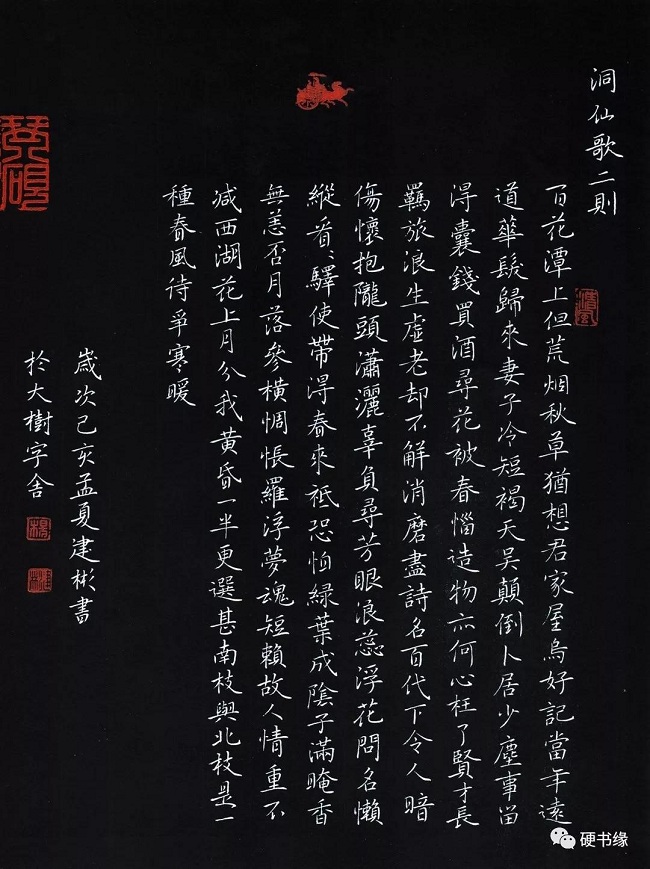 洞仙歌二則
百花潭上但荒烟秋草猶想君家屋烏好記當年遠
道華髮歸來妻子冷短褐天吳顛倒卜居少塵事留
得囊錢買酒尋花被春惱造物亦何心枉了賢才長
羈旅浪生虛老却不解消磨盡詩名百代下令人暗
傷懷抱隴頭瀟灑辜負尋芳眼浪蕊浮花問名懶
縱看〻驛使帶得春來祗恐怕綠葉成陰子滿晻香
無恙否月落參橫惆悵羅浮夢魂短賴故人情重不
減西湖花上月分我黃昏一半更選甚南枝與北枝是一
種春風待爭寒暖
歲次己亥孟夏建彬書
於大樹字舍
楊
硬书缘